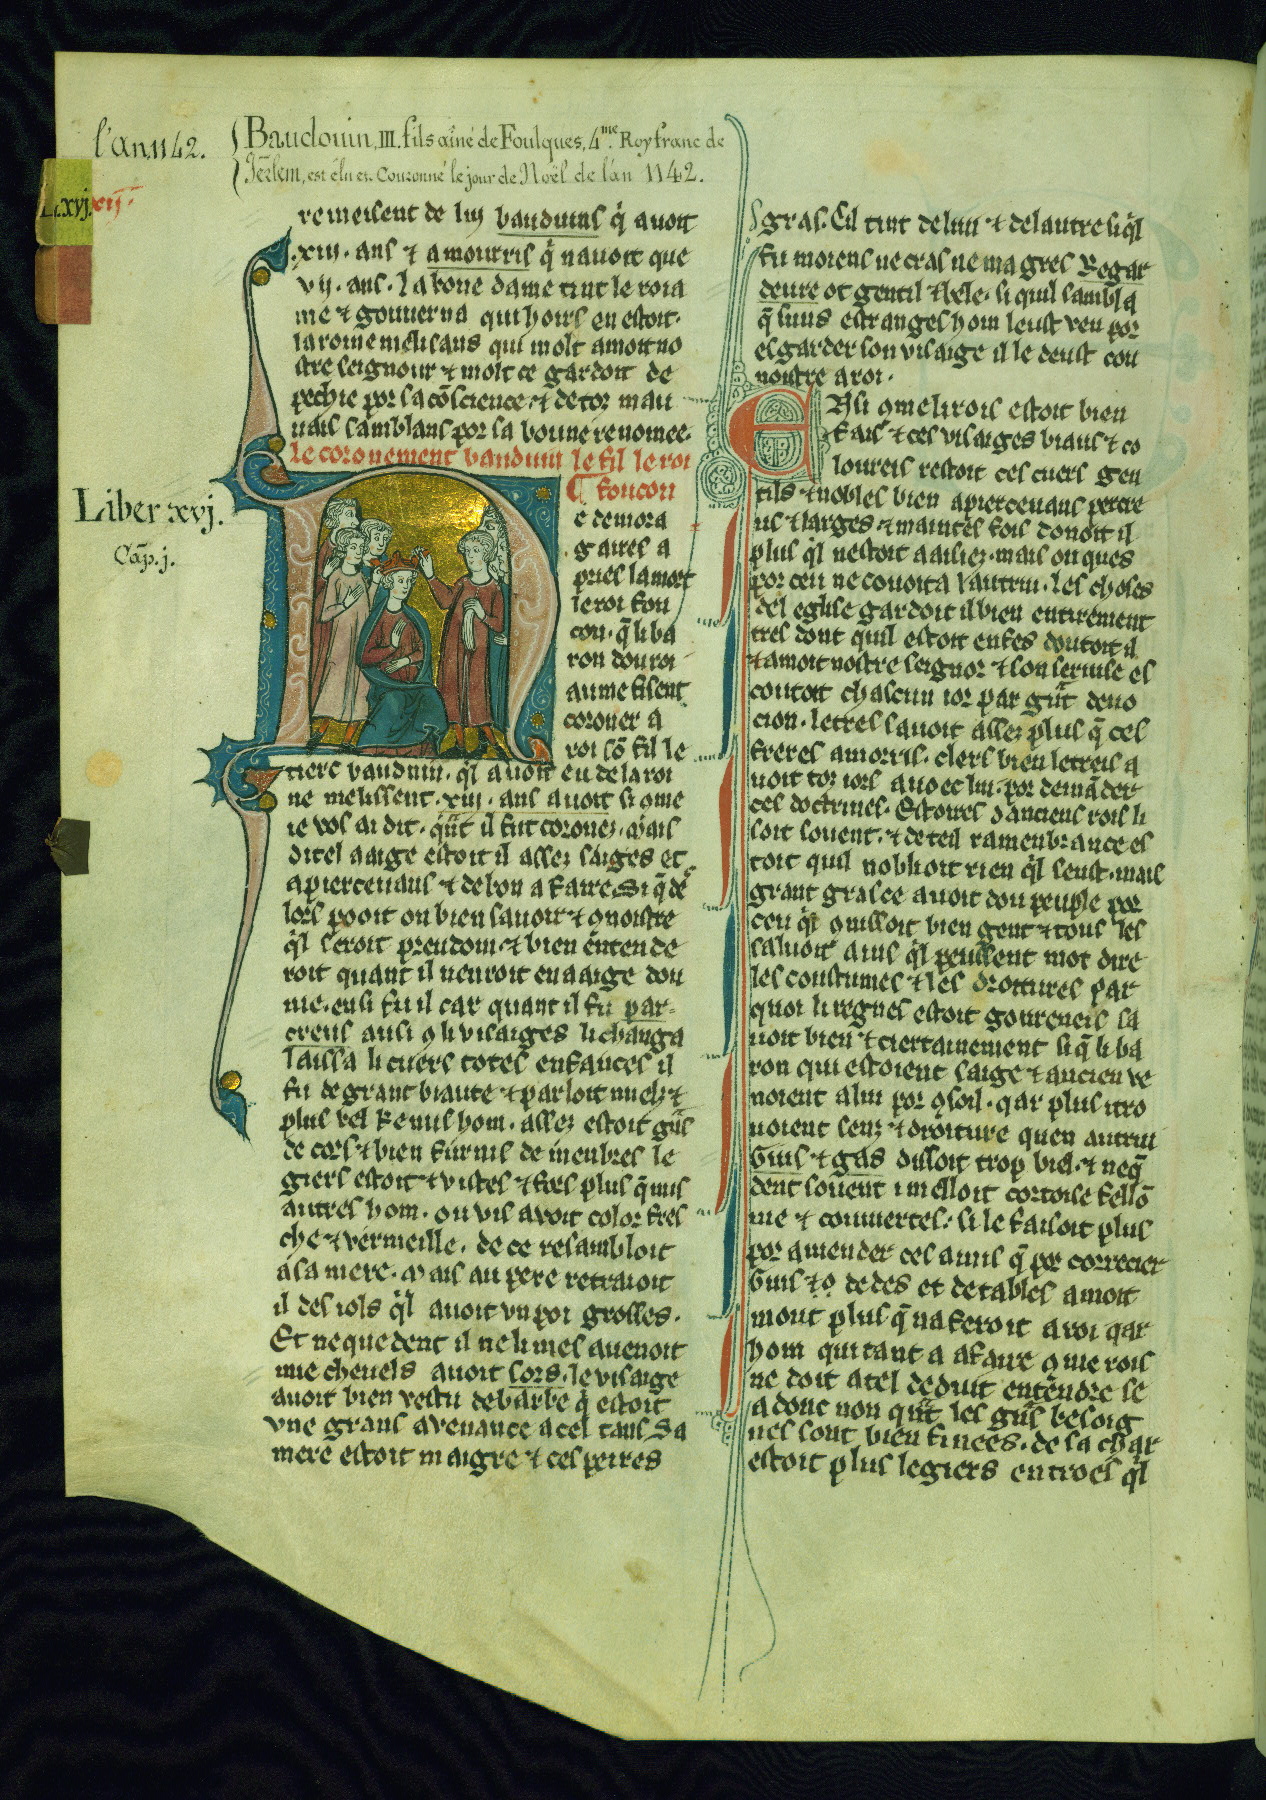 l'An 1142.
Baudouin, III. fils aîné de Foulques, 4.me Roy franc de
Jerlem, est élu et Couronné le jour de Noël de l'an 1142.
Li.xvj. xij
remeisent de luy bauduins q̃ avoit
.xiii. ans ⁊ amourris q̃ navoit que
vij. ans. la bone dame tint le roia
me ⁊ gouverna qui hoirs en estoit.
la roine melisans qui molt amoit no
stre seignour ⁊ molt ce gardoit de
pechie por sa cõscience ⁊ de tor mau
vais samblans por sa bonne renomee.
le coronement bauduin le fil le roi
foucon
Liber xvj.
Cap. j.
e demora
gaires a
pries la mort
le roi fou
con. q̃ li ba
ron dou roi
aume fisent
coroner a
roi sõ fil le
tiers bauduin. ql avoit eu de la roi
ne melissent. xiii. ans avoit si ome
ie vos ai dit. qñt il fut coronez. mais
ditel aaige estoit il assez saiges et
apiercevans ⁊ de bon afaire. Si q̃ de
lors pooit on bien savoir ⁊ 9noistre
ql seroit preudom ⁊ bien entende
roit quant il venroit en aaige dou
me. ensi fu il car quant il fu par
creus ausi 9 li visaiges li changa
laissa li cuers totes enfances il
fu de grant biaute ⁊ parloit muelz ⁊
plus bel ke nus hom. assez estoit gñs
de cors ⁊ bien furnis de menbres le
giers estoit ⁊ vistes ⁊ fors plus q̃ nus
autres hom. ou vis avoit color fres
che ⁊ vermeille. de ce resambloit
a sa mere. Mais au pere retraioit
il des iols ql avoit un poi grosses.
Et nequedent il ne li mes avenoit
mie cheuels avoit sors. le visaige
avoit bien vestu de barbe q̃ estoit
une grans avenance a cel tans. Sa
mere estoit maigre ⁊ ces peires
gras. Cil tint de lun ⁊ de lautre si ql
fu moiens ne cras ne magres Regar
deure ot gentil ⁊ bele. si quil sambla
q̃ suns estranges hom leust veu por
esgarder son visaige il le deust cou
noistre a roi.
Ausi 9me li rois estoit bien
fais ⁊ ces visaiges biaus ⁊ co
loureis restoit ces cuers gen
tils ⁊ nobles bien apiercevans percre
us ⁊ larges ⁊ maintes fois donoit il
plus ql nestoit aaisiez. mais onques
por ceu ne covoita lautrui. les choses
del eglise gardoit il bien entirement
tres dont quil estoit enfes doutoit il
⁊ amoit nostre seignor ⁊ son servise es
coutoit chascun ior par gñt devo
cion. letres savoit assez plus q̃ ces
freres amorris. clers bien letreis a
voit toz iors avoec lui. por demãder
ces doctrines. Estoires danciens rois li
soit souent. ⁊ de teil ramenbrance es
toit quil noblioit rien ql seust. mais
grant grasce avoit dou peuple por
ceu ql 9nissoit bien gent ⁊ tous les
saluoit ains ql peussent mot dire
les coustumes ⁊ les droitures par
quoi li regnes estoit gouverneis sa
voit bien ⁊ ciertainement si q̃ li ba
ron qui estoient saige ⁊ ancien ve
noient a lui por 9soil. qar plus itro
voient sens ⁊ droiture quen autrui
Guis ⁊ gas dissoit trop biel. ⁊ neq̃
dent souent i melloit cortoise fellõ
nie ⁊ couuertes. si le faisoit plus
por amender ces amis q̃ por correcier
Guis ⁊ 9 de des et de tables amoit
mout plus q̃ naferoit a roi qar
hom qui tant a afaire 9me rois
ne doit a tel deduit entendre se
adonc non qñt les gñs besoig
nes sont bien finees. de sa char
estoit plus legiers entroes ql